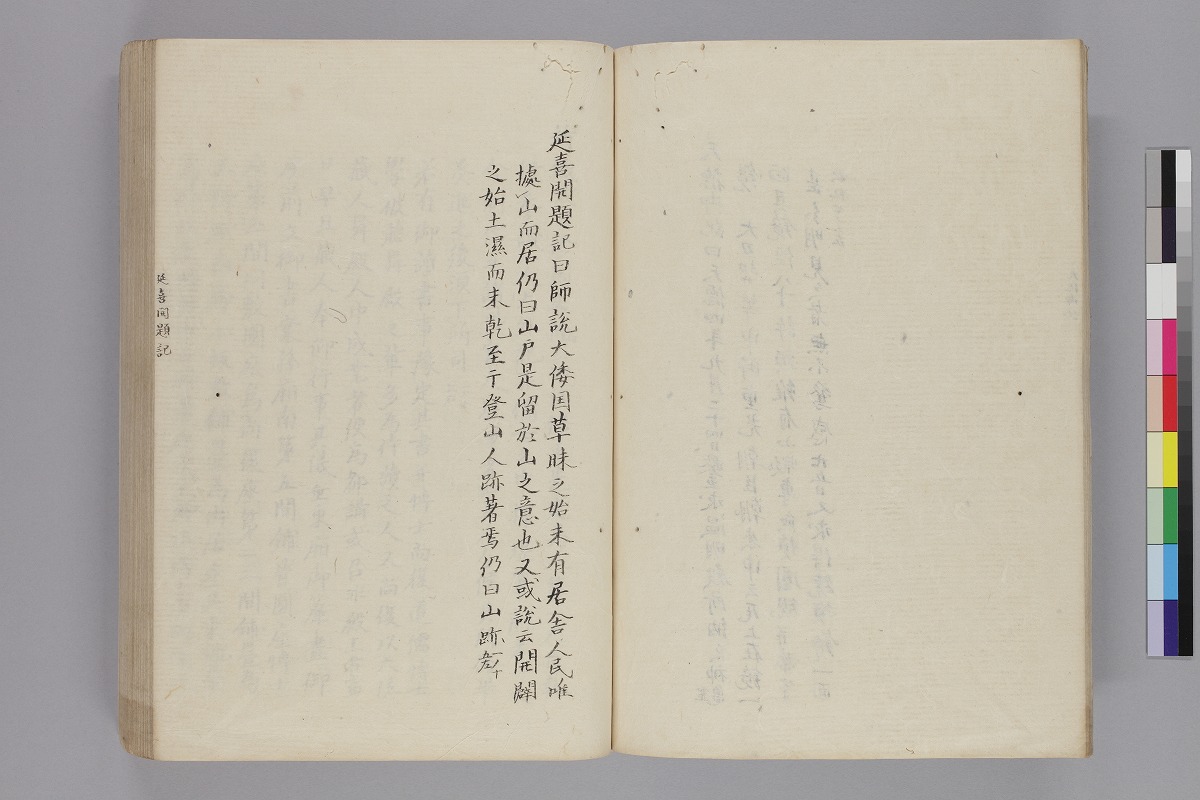 延喜開題記曰師說大倭国草昧之始未有居舎人民唯
據山而居仍曰山戸是留於山之意也又或說云開闢
之始土濕而未乾至于登山人跡著焉仍曰山跡
延喜開題記